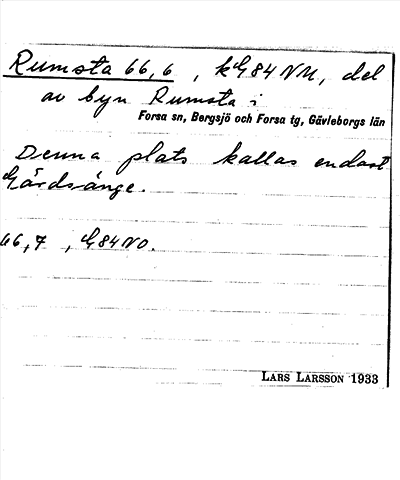 Rumsta 66,6, kG84NM, del
av byn Rumsta i
Forsa sn, Bergsjö och Forsa tg, Gävleborgs län
Denna plats kallas endast
Gärdsänge.
66,7, G84NO.
LARS LARSSON 1933